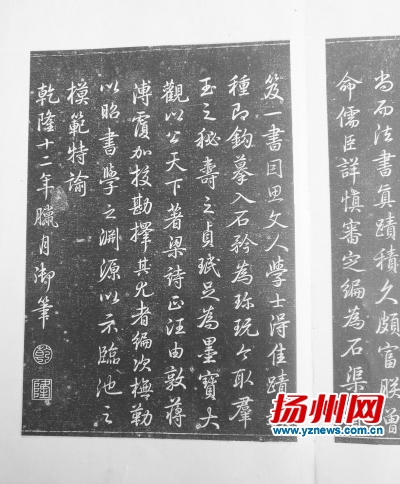 尚而法書真蹟積久頗富朕曾
命儒臣詳慎審定編為石渠
笈一書因思文人學士得佳蹟
種即鈎摹入石矜為珍玩今取羣
玉之秘壽之貞珉足為墨寶大
觀以公天下著梁詩正汪由敦蔣
溥覆加校勘擇其尤者編次橅勒
以昭書學之淵源以示臨池之
模範特諭
乾隆十二年臘月御筆
乾
隆
扬州网
www.yznews.com.cn